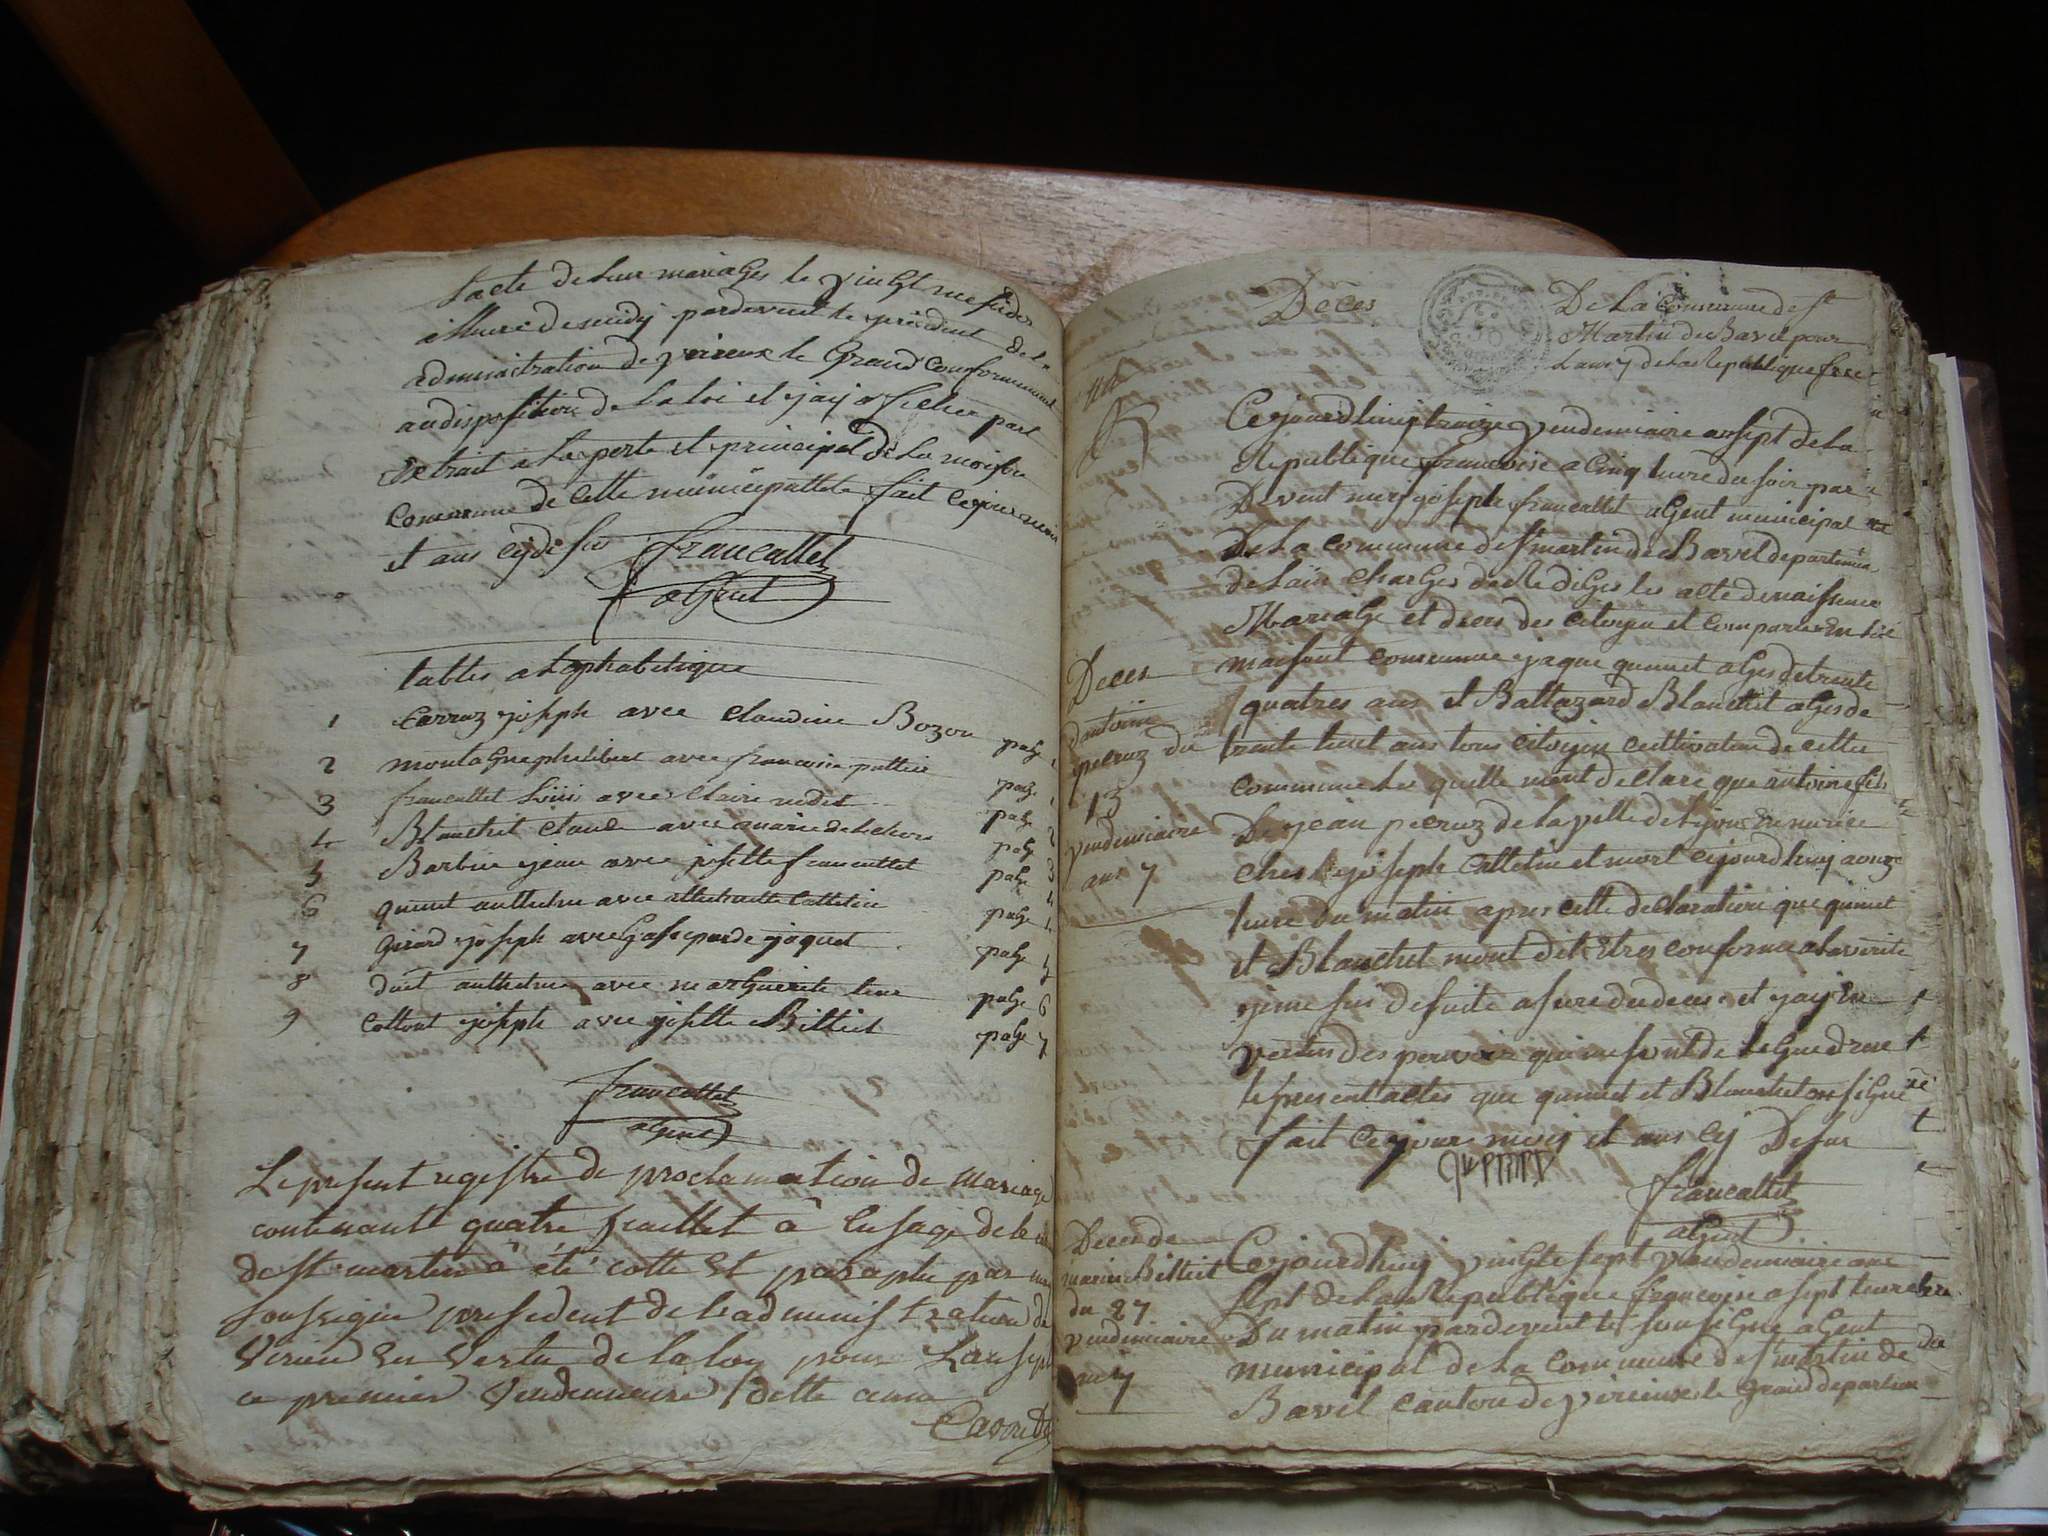 lacte de leur mariages le vingt mesidor
a lheure de midy pardevent le président de la
administration de virieux le Grand Conformement
au disposition de la loi et jay afficher part
Extrait a la porte et principal de la maison
Commune de cette municipallete fait ce jour mois
et ans cy desus francallet
agent
tables alaphabetique
1 Carraz joseph avec Claudine Bozon page 1
2 montagne philibert avec francoise pattier page 1
3 francallet Louis avec Claire page 2
4 Blanchet Claude avec marie page 3
5 Barbier jean avec josette francallet page 4
6 quinet anthelme avec Cattelin page 4
7 Girard joseph avec Gasparde jaquet page 5
8 anthelme avec marguerite page 6
9 Cottont joseph avec josette Billiet page 7
francallet
agent
Le present registre de proclamation de Mariage
contenant quatre feuillet â lusage de la
de St martin â été cotte Et paraphe par moi
soussigné president de ladministration de
Virieu En Vertu de la loy pour Lan sept
ce premier Vendemiaire / dette anne
Deces
De la Commune de St
Martin de Bavel pour
Lans 7 de la Republique frse
Cejourdhuy traize vendemiaire an sept de la
Republique francoise a Cinq heure du soir par
Devent moy joseph francallet agent municipal
De la Commune de St martin de Bavel departemen
de lain Charges de Rediges les acte de naissence
Mariage et deces des Citoyen et Comparu En la
Deces maisont Commune jaque quinet ages de trente
dantoine quatres ans et Baltazard Blanchet ages de
pecruz du trente huit ans tous Citoyen Cultivateur de cette
13 Commune les quelle mont declare que antoine fils
vendemiaire De jean pecruz de la ville de lyon En nurice
ans 7 Ches joseph Cattelin et mort cejourdhuy a onze
heure du matin apres cette declaration que quinet
et Blanchet mont dit Etres conforme a la verite
je me suis de suite asure du deces et jay En
vertus des pouvoir qui me sont delegue drese
le present actes que quinet et Blanchet on signe
fait Ce jour mois et ans Cy Desus
francallet
agent
Deces de
marie Billiet Cejourdhuy vingte sept vendemiaire ans
du 27 sept de la Republique francoise a sept heure
vendemiaire Du matin pardevent le sousigne agent
ans 7 municipal de la Commune de St martin de
Bavel Canton de virieux le Grand departemen